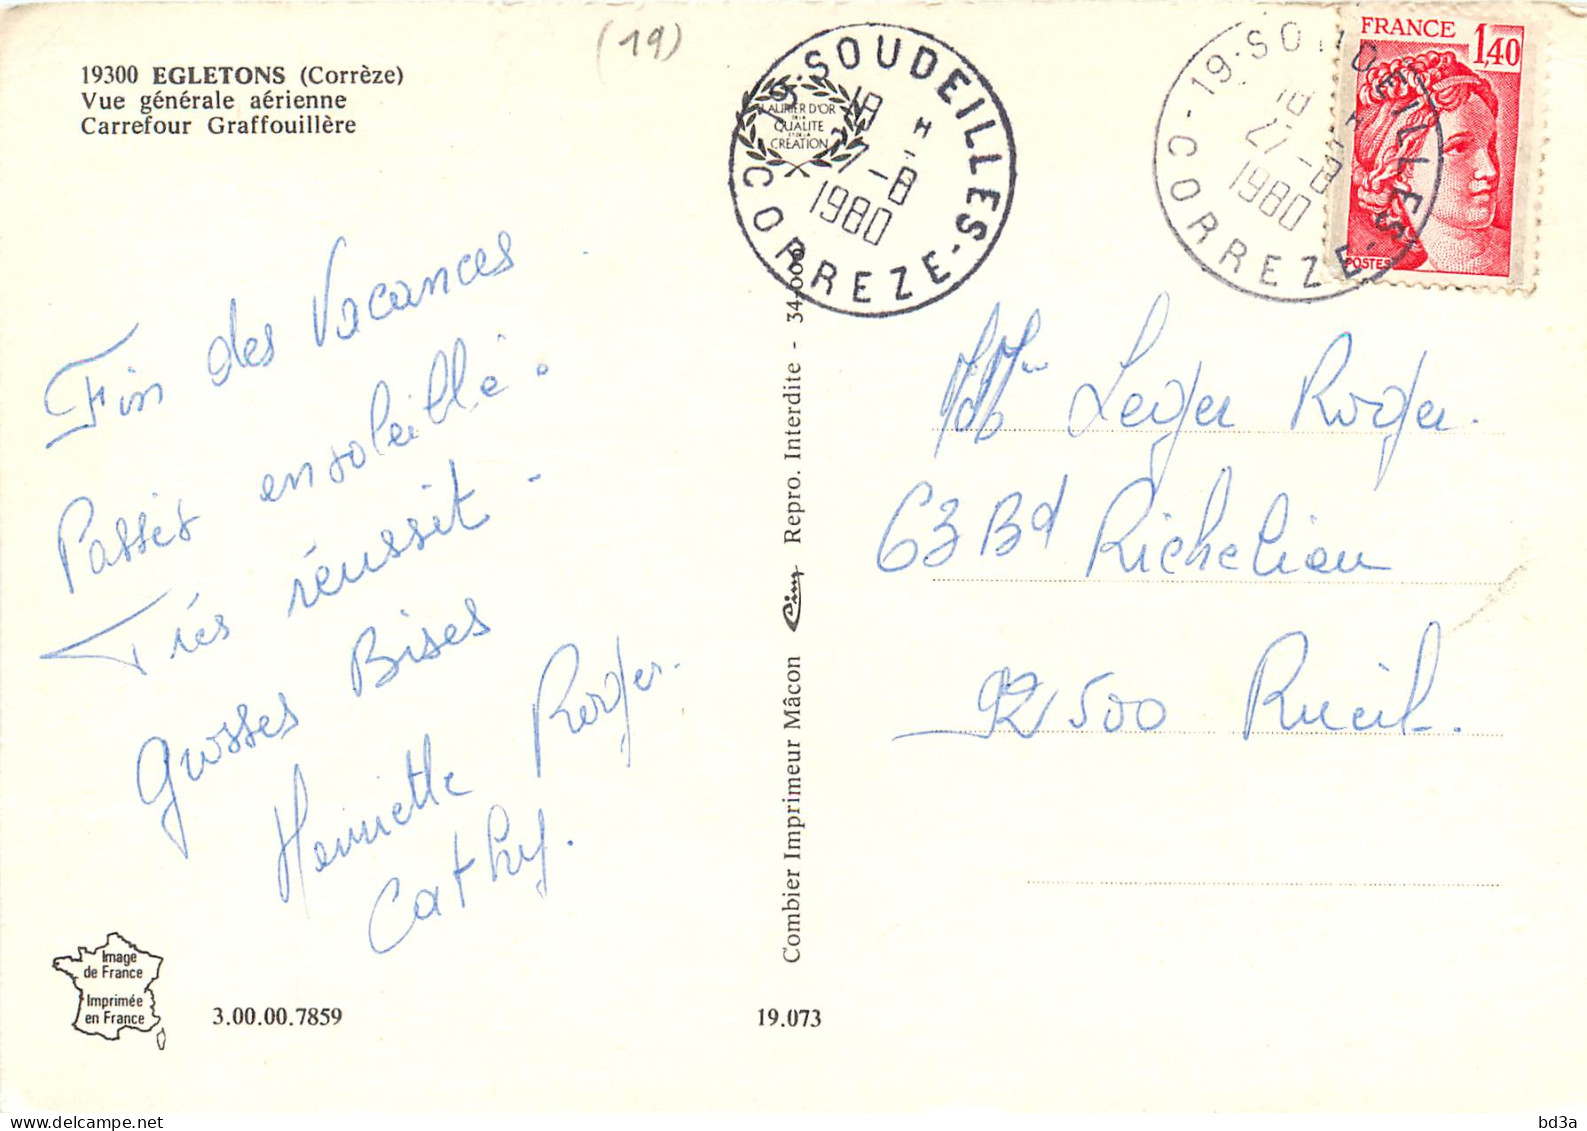 19300 EGLETONS (Corrèze)
Vue générale aérienne
Carrefour Graffouillère
(19)
Fin des Vacances
Passés ensoleillé.
Trés réussit.
Grosses Bises
Henriette Roger.
Cathy.
Image
de France
Imprimée
en France
3.00.00.7859
19.073
Combier Imprimeur Mâcon Cim Repro. Interdite - 34.000
LAURIER D'OR
DE LA
QUALITE
ET DE LA
CREATION
19-SOUDEILLES-
CORREZE-
18 H
27-8
1980
-19-SOUDEILLES
-CORREZE-
18 H
27-8
1980
FRANCE
1,40
POSTES
Leger Roger.
63 Bd Richelieu
92500 Rueil.
bd3a